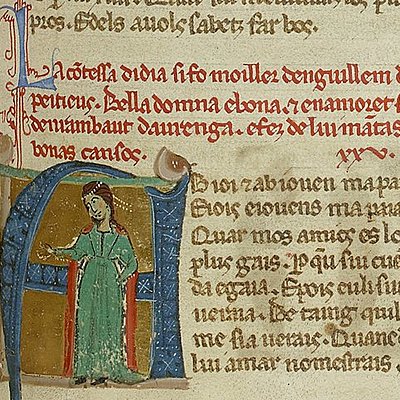 pros. Edels auols sabetz far bos.
La cōtessa didia si fo moiller denguillem d
peitieus. Bella domna e bona. ⁊ enamoret
denrambaut daurenga. e fez de lui mātas
bonas cansos. XXV.
Ab ioi ⁊ ab iouen ma pa
E iois e iouens ma paia
Quar mos amics es lo
plus gais. P q̄u sui cue
da e gaia. E pois eu li su
ueraia. Be taing quil
me sia uerais. Quanc
lui amar nomestrais